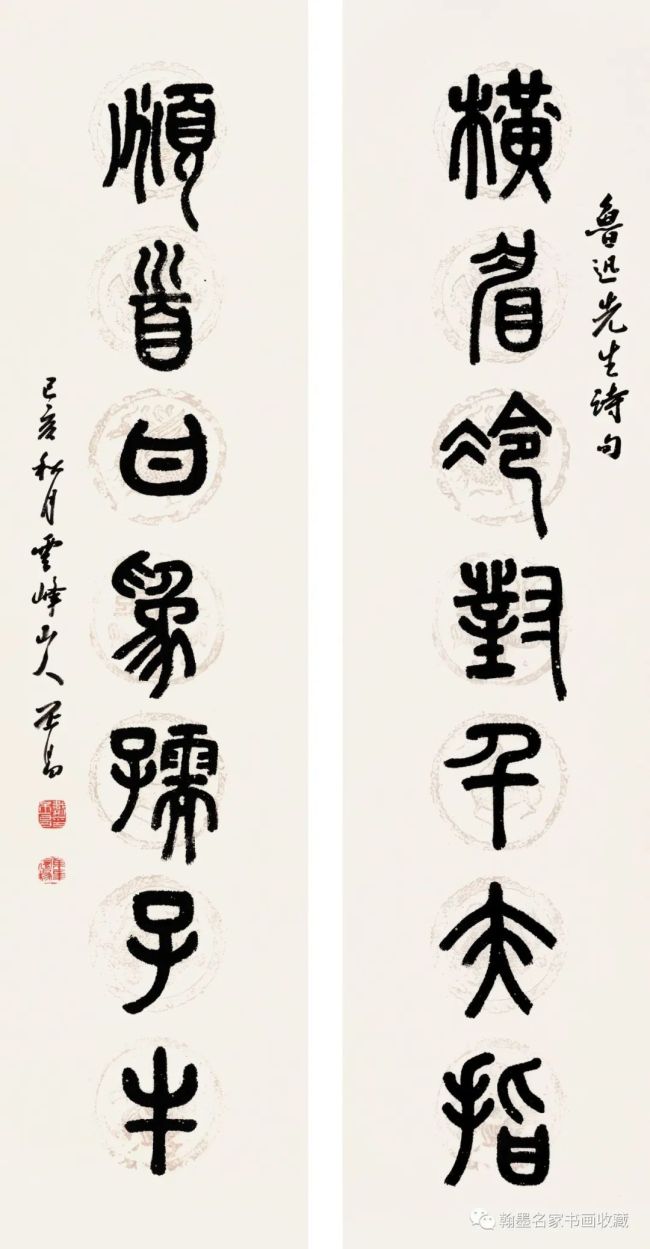 魯迅先生詩句
橫眉冷對千夫指
頫首甘爲孺子牛
己亥秋月雲峰山人丕昌
翰墨名家书画收藏